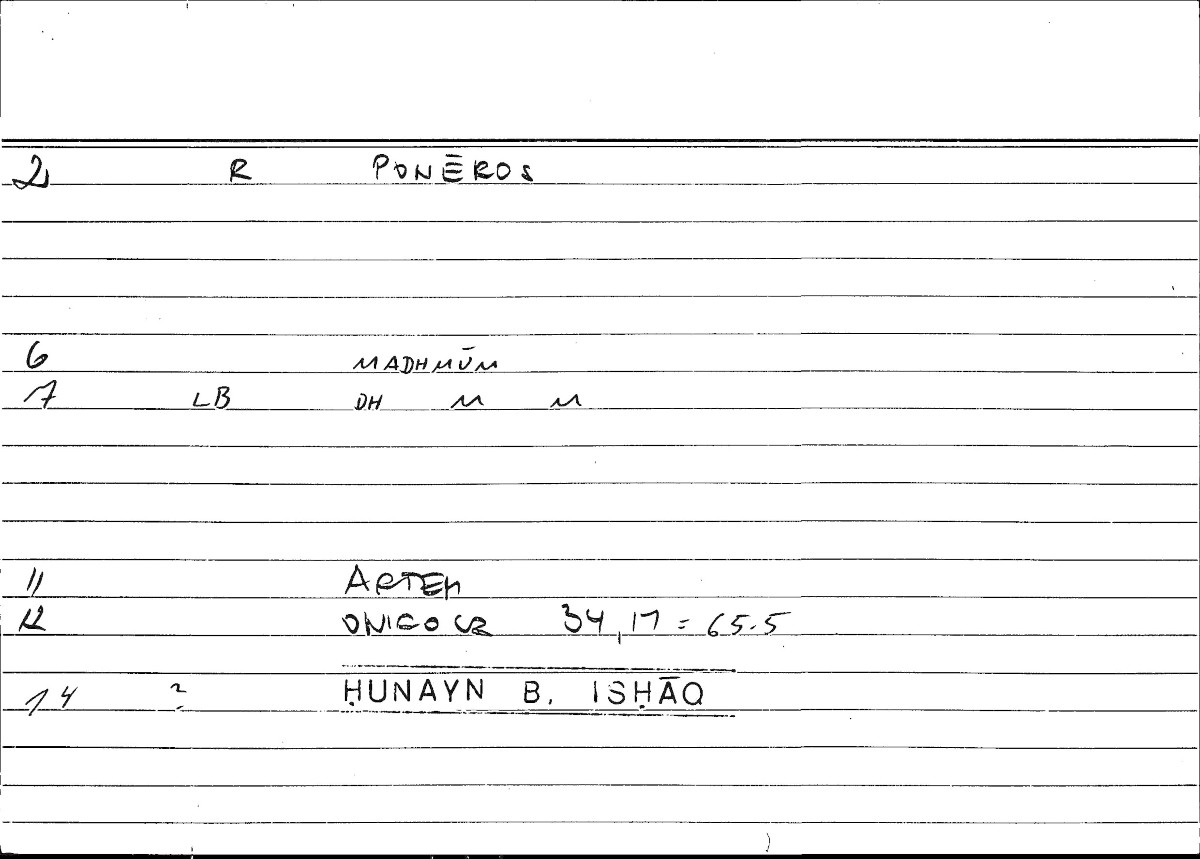 2 R PONĒROS
6 MADHMŪM
7 LB DH M M
11 ARTEM
12 ONIEOCR 34,17 = 65.5
14 ? ḤUNAYN B. ISḤĀQ